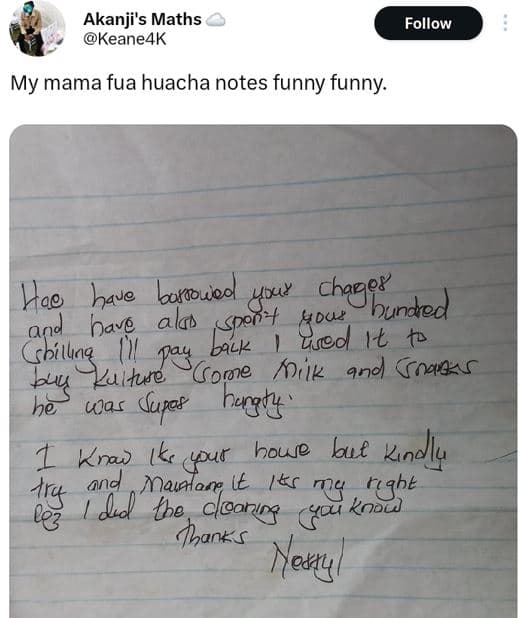 Akanji's Maths
@Keane4K
Follow
My mama fua huacha notes funny funny.
Hae have borrowed your charger
and have also spent your hundred
shilling I'll pay back I used it to
buy Kulture some milk and snacks
he was super hungry.
I know its your house but kindly
try and Maintane it its my right
coz I did the cleaning you know
Thanks
Nerryl